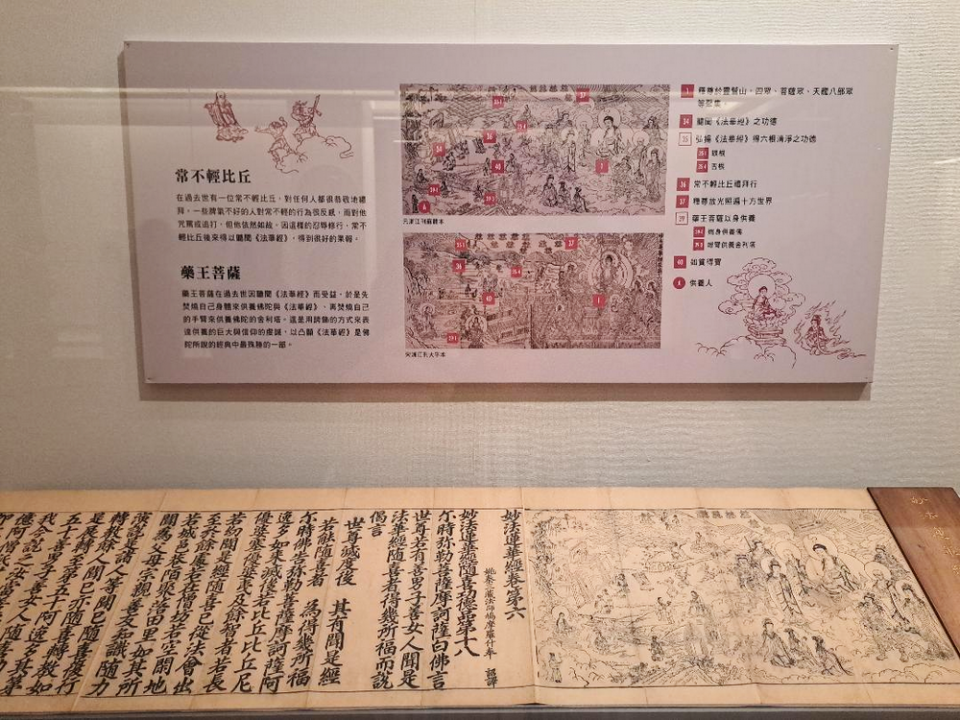 常不輕比丘
在過去世有一位常不輕比丘，對任何人都很恭敬地禮
拜，一些脾氣不好的人對常不輕的行為很反感，而對他
咒罵或追打，但他依然如故。因這樣的忍辱修行，常不
輕比丘後來得以聽聞《法華經》，得到很好的果報。
藥王菩薩
藥王菩薩在過去世因聽聞《法華經》而受益，於是先
焚燒自己身體來供養佛陀與《法華經》，再焚燒自己
的手臂來供養佛陀的舍利塔。這是用誇飾的方式來表
達供養的巨大與信仰的虔誠，以凸顯《法華經》是佛
陀所說的經典中最殊勝的一部。
1 釋尊於靈鷲山，四眾、菩薩眾、天龍八部眾
等聖集
34 聽聞《法華經》之功德
35 弘揚《法華經》得六根清淨之功德
36 常不輕比丘禮拜行
37 釋尊放光照遍十方世界
39 藥王菩薩以身供養
39-1 燃身供養佛
39-2 燃臂供養舍利塔
40 如貧得寶
A 供養人
妙法蓮華經卷第六
姚秦三藏法師鳩摩羅什奉 詔譯
妙法蓮華經隨喜功德品第十八
尒時彌勒菩薩摩訶薩白佛言
世尊若有善男子善女人聞是
法華經隨喜者得幾所福而說
偈言
世尊滅度後 其有聞是經
若能隨喜者 為得幾所福
尒時佛告彌勒菩薩摩訶薩阿
逸多如來滅後若比丘比丘尼
優婆塞優婆夷及餘智者若長
若幼聞是經隨喜已從法會出
至於餘處若在僧坊若空閑地
若城邑巷陌聚落田里如其所
聞為父母宗親善友知識隨力
演說是諸人等聞已隨喜復行
轉教餘人聞已亦隨喜轉教如
是展轉至第五十阿逸多其第
五十善男子善女人隨喜功德
我今說之汝